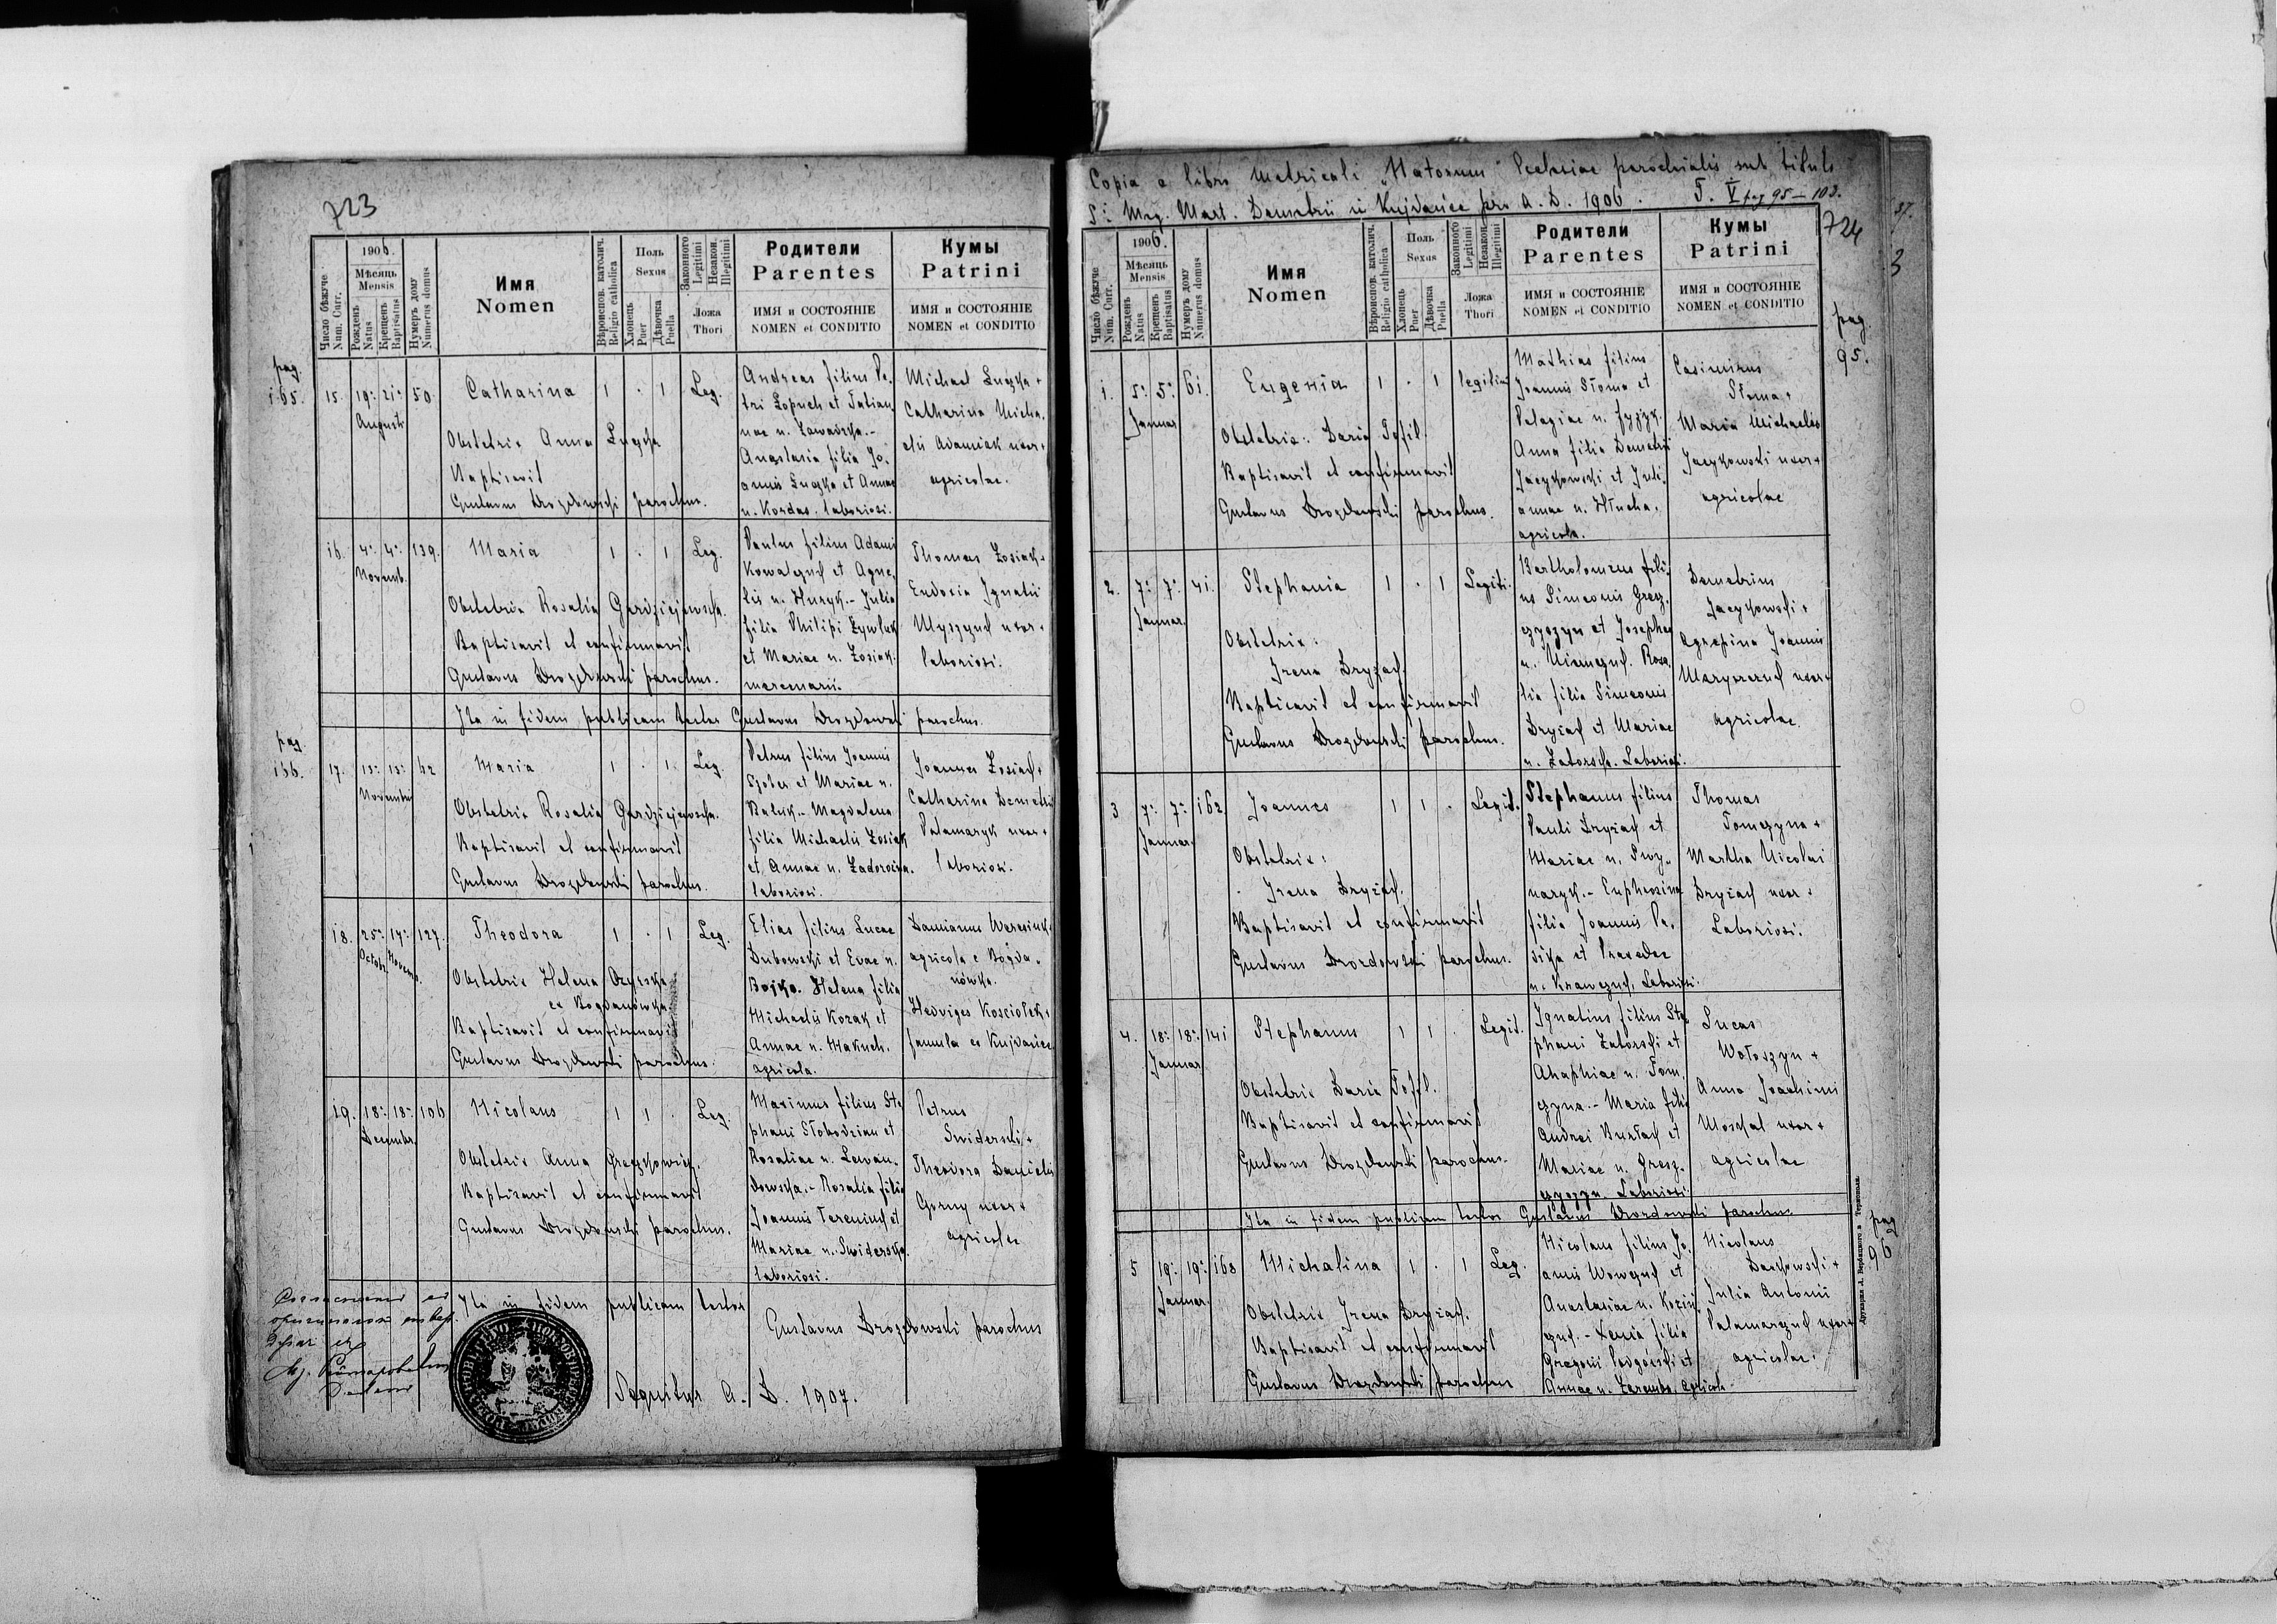 723
Число бѣжуче
Num. Curr.
1906.
Мѣсяць
Mensis
Рожденъ
Natus
Крещенъ
Baptisatus
Нумеръ дому
Numerus domus
Имя
Nomen
Вѣроиспов. католич.
Religio catholica
Поль
Sexus
Хлопець
Puer
Дѣвочка
Puella
Законного
Legitimi
Незакон.
Illegitimi
Ложа
Thori
Родители
Parentes
ИМЯ и СОСТОЯНІЕ
NOMEN et CONDITIO
Кумы
Patrini
ИМЯ и СОСТОЯНІЕ
NOMEN et CONDITIO
pag.
155.
15. 19. 21. 50. Catharina 1 . 1 Leg.
Augusti
Obstetrix Anna Luczka
Baptisavit
Gustavus Drozdowski parochus.
Andreas filius Pe-
tri Lopuch et Tatian-
nae n. Zawadzka.-
Anastasia filia Jo-
annis Luczka et Annae
n. Kordas. laboriosi.
Michael Luczka +
Catharina Micha-
elis Adamiak uxor +
agricolae.
16. 4. 4. 139. Maria 1 . 1 Leg.
Novemb.
Obstetrix Rosalia Gordziejewska.
Baptisavit et confirmavit
Gustavus Drozdowski parochus.
Paulus filius Adami
Kowalczuk et Agne-
tis n. Huryk.- Julia
filia Philipi Zywluk
et Mariae n. Zosiak.
mercenarii.
Thomas Zosiak +
Eudoxia Ignatii
uxor +
laboriosi.
Ita in fidem publicam testor Gustavus Drozdowski parochus.
pag.
156.
17. 13. 13. 42 Maria 1 . 1 Leg.
Novembris
Obstetrix Rosalia Gordziejewska.
Baptisavit et confirmavit
Gustavus Drozdowski parochus.
Petrus filius Joannis
et Mariae n.
Baluk.- Magdalena
filia Michaelis Zosiak
et Annae n. Zadorozna.
laboriosi.
Joannes Zosiak +
Catharina Demetrii
Palamaryk uxor +
laboriosi.
18. 25. 14. 127. Theodora 1 . 1 Leg.
Octobr. Novemb.
Obstetrix Helena
ex Bogdanówka.
Baptisavit et confirmavit
Gustavus Drozdowski parochus.
Elias filius Lucae
Dubowski et Evae n.
Bojko. Helena filia
Michaelis Kozak et
Annae n. Makuch.
agricola.
Damianus
agricola e Bogda-
nówka.
Hedviges Kosciołek +
famula ex Kujdańce
19. 18. 18. 106 Nicolaus 1 1 . Leg.
Decembr.
Obstetrix Anna
Baptisavit et confirmavit
Gustavus Drozdowski parochus.
Maximus filius Ste-
phani Słobodzian et
Rosaliae n. Lewan-
dowska.- Rosalia filia
Joannis Tereniuk et
Mariae n. Swiderska.
laboriosi.
Petrus
Swiderski +
Theodora Danielis
Gorny uxor +
agricolae
Ita in fidem publicam testor
Gustavus Drozdowski parochus
Sequitur A. D. 1907.
Copia e libro Metricali „Natorum" Ecclesiae parochialis sub titulo
S. Mag. Mart. Demetrii in Kujdańce pro A. D. 1906. T. V pag 95-103.
724
37.
3
Число бѣжуче
Num. Curr.
1906.
Мѣсяць
Mensis
Рожденъ
Natus
Крещенъ
Baptisatus
Нумеръ дому
Numerus domus
Имя
Nomen
Вѣроиспов. католич.
Religio catholica
Поль
Sexus
Хлопець
Puer
Дѣвочка
Puella
Законного
Legitimi
Незакон.
Illegitimi
Ложа
Thori
Родители
Parentes
ИМЯ и СОСТОЯНІЕ
NOMEN et CONDITIO
Кумы
Patrini
ИМЯ и СОСТОЯНІЕ
NOMEN et CONDITIO
pag.
95.
1. 5. 5. 61. Eugenia 1 . 1 legitim
Januar
Obstetrix: Daria Tofil.
Baptisavit et confirmavit
Gustavus Drozdowski parochus.
Mathias filius
Joannis Słoma et
Pelagiae n.
Anna filia Demetrii
Jaczkowski et Juli-
annae n. Hłucha.
agricola.
Casimirus
Słoma +
Maria Michaelis
Jaczkowski uxor +
agricolae
2. 7. 7. 41. Stephania 1 . 1 Legiti.
Januar.
Obstetrix:
Irena Dryżak.
Baptisavit et confirmavit
Gustavus Drozdowski parochus.
Bartholomeus fili-
us Simeonis Grez-
czyszyn et Josephae
n. Rosa-
lia filia Simeonis
Dryżak et Mariae
n. Zatorska. Laboriosi.
Demetrius
Jaczkowski +
Agrepina Joannis
uxor +
agricolae.
3. 7. 7. 162. Joannes 1 1 . Legit.
Januar.
Obstetrix:
Irena Dryżak.
Baptisavit et confirmavit
Gustavus Drozdowski parochus.
Stephanus filius
Pauli Dryżak et
Mariae n.
Euphrosina
filia Joannis
et Praxedae
n. Krawczuk, Laboriosi.
Thomas
Tomczyna +
Martha Nicolai
Dryżak uxor +
Laboriosi.
4. 18. 18. 141 Stephanus 1 1 . Legit.
Januar.
Obstetrix Daria Tofil.
Baptisavit et confirmavit
Gustavus Drozdowski parochus.
Ignatius filius Ste-
phani Zatorski et
Ahaphiae n. Tom-
czyna.- Maria filia
Andrei et
Mariae n. Grez-
czyszyn. Laboriosi.
Lucas
Wołoszyn +
Anna Joachimi
Moskal uxor +
agricolae
Ita in fidem publicam testor Gustavus Drozdowski parochus.
pag
96
5 19. 19. 168 Michalina 1 . 1 Leg.
Januar.
Obstetrix Irena Dryżak.
Baptisavit et confirmavit
Gustavus Drozdowski parochus
Nicolaus filius Jo-
annis Wowczuk et
Anastasiae n.
Xenia filia
Gregorii Podgórski et
Annae n. Zaremba, agricola.
Nicolaus
+
Julia Antonii
Palamarczuk uxor +
agricolae.